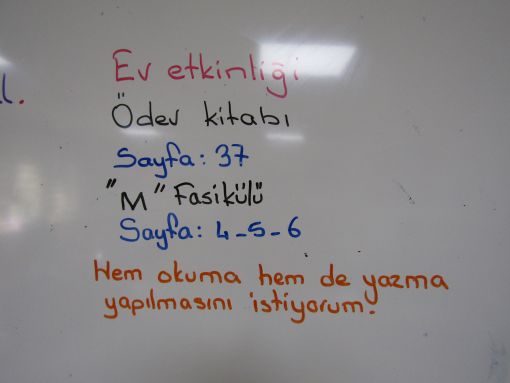 Ev etkinliği
Ödev kitabı
Sayfa: 37
"M" Fasikülü
Sayfa: 4-5-6
Hem okuma hem de yazma
yapılmasını istiyorum.